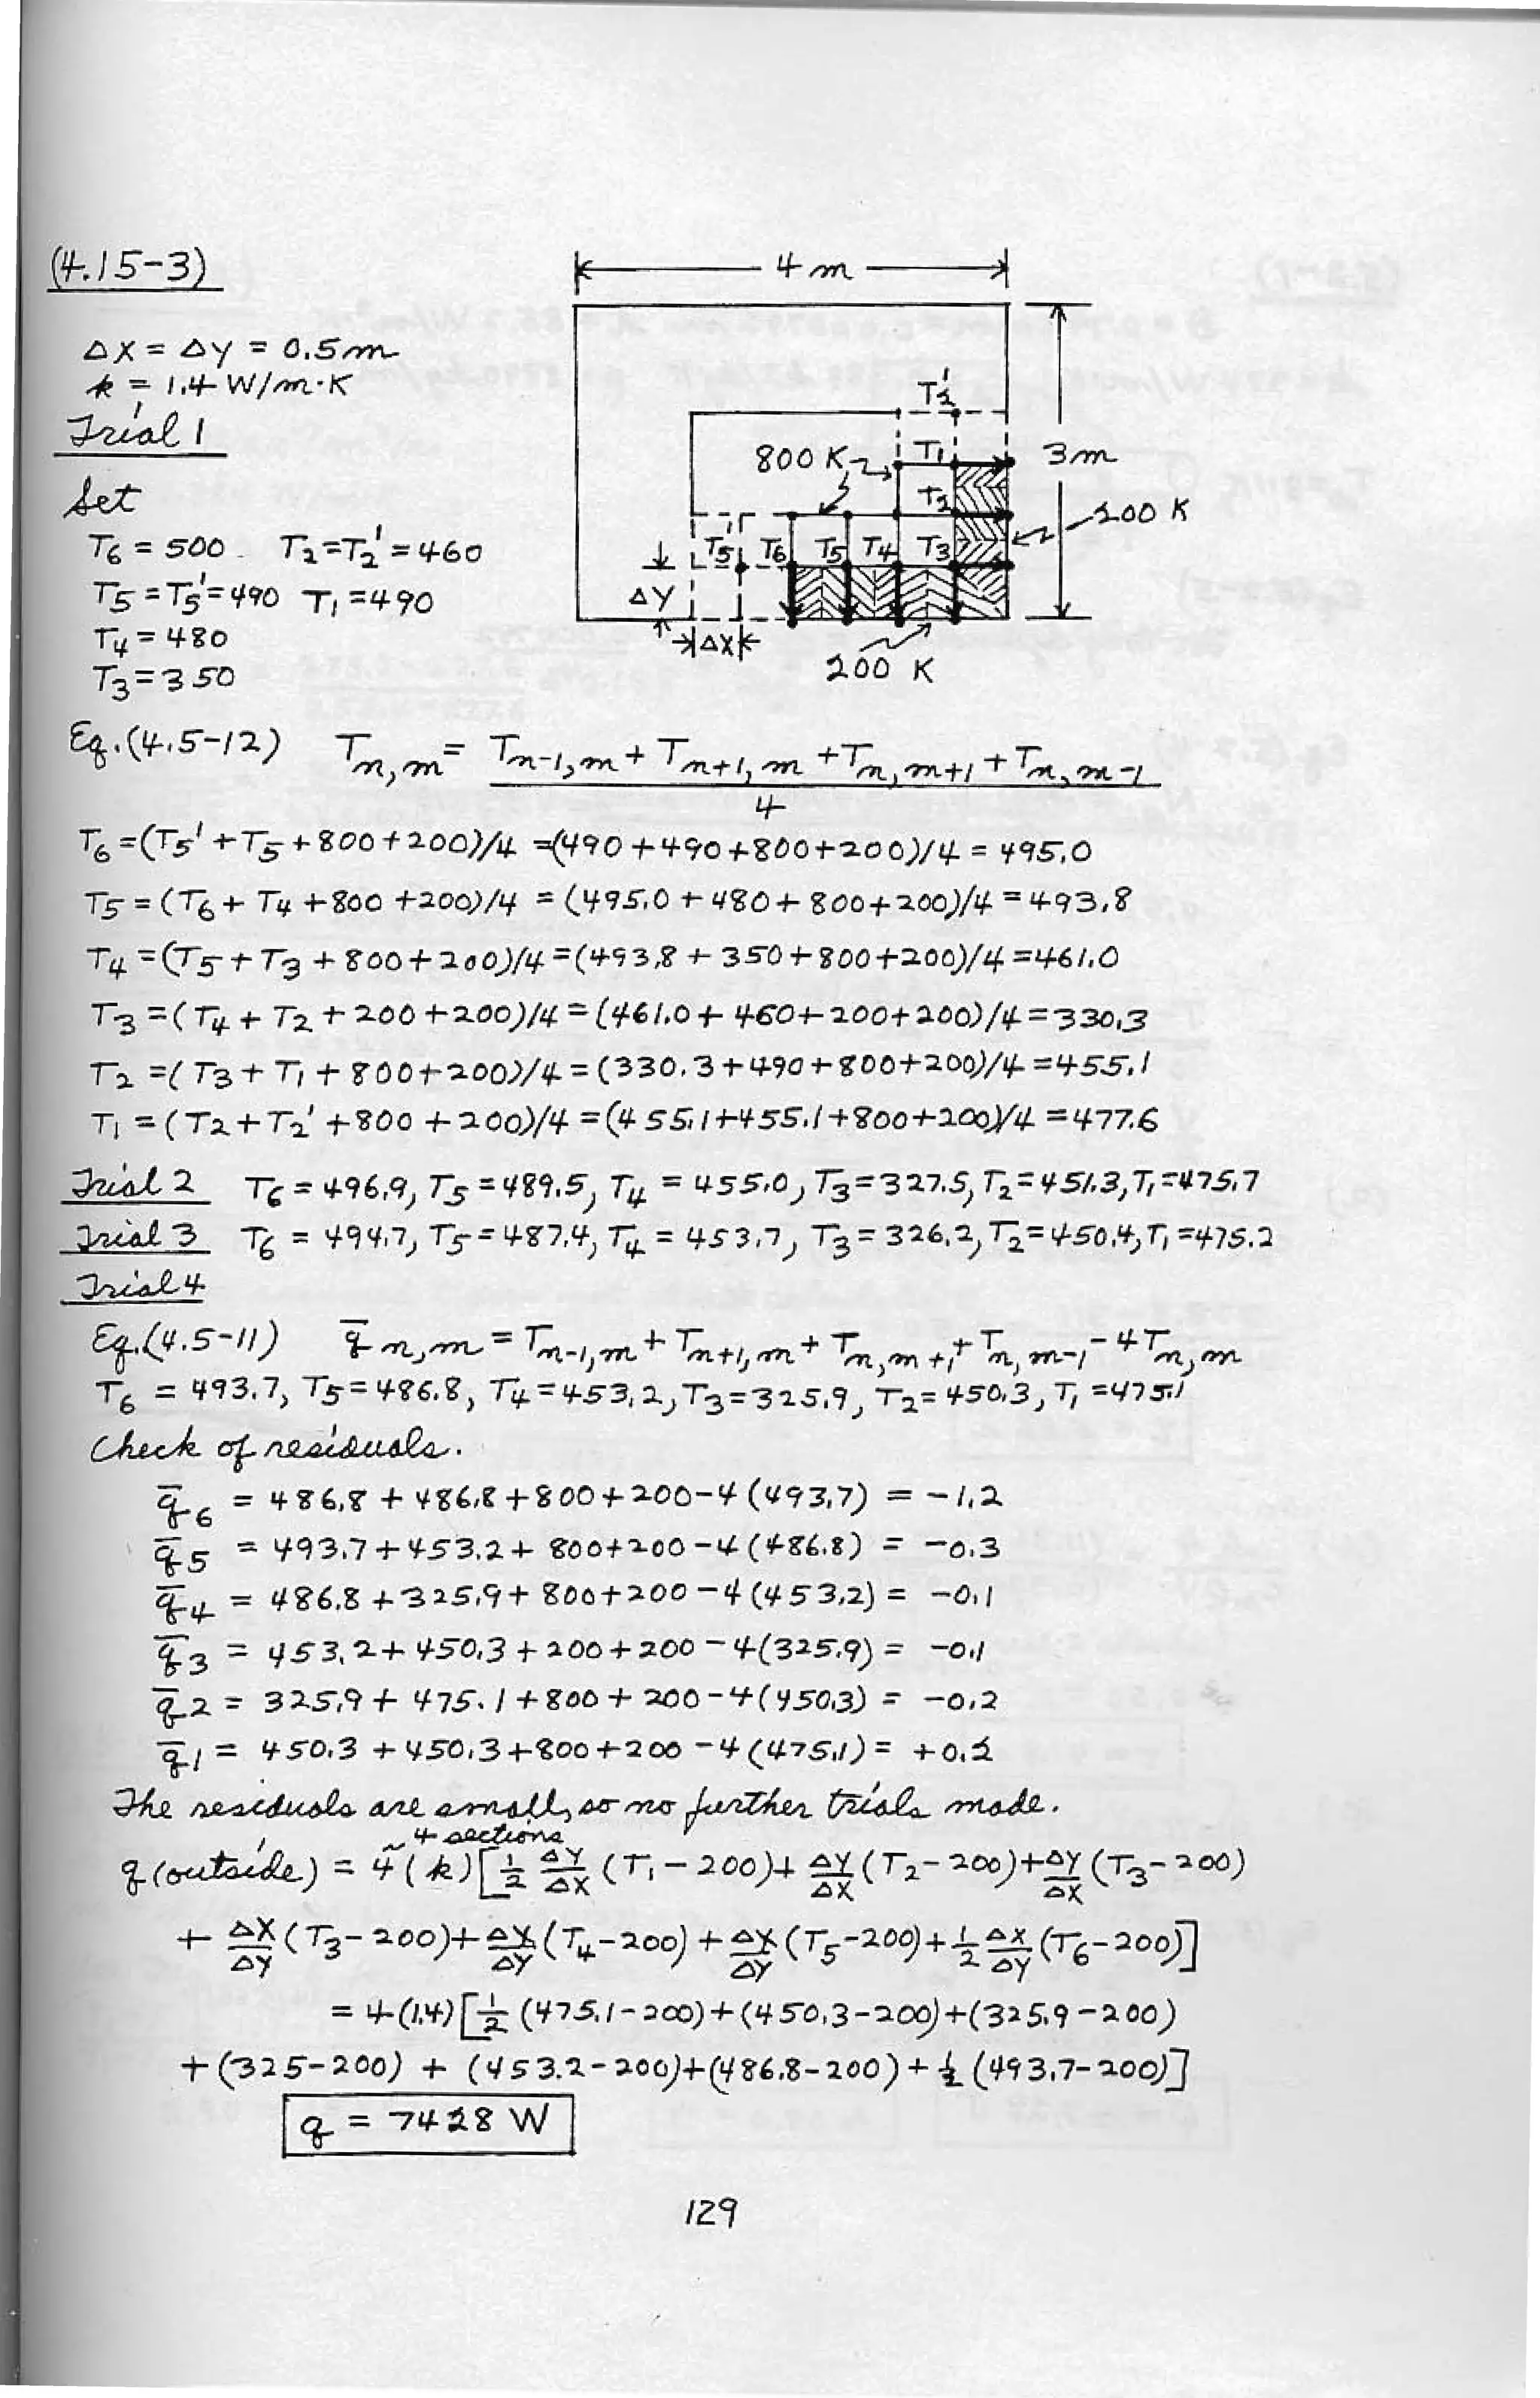 (4.15-3)
4 m
Δx = Δy = 0.5 m
k = 1.4 W/m·K
Trial 1
Set
T6 = 500 T2 = T2' = 460
T5 = T5' = 490 T1 = 490
T4 = 480
T3 = 350
T2'
800 K
T1
3 m
T2
200 K
T5' T6 T5 T4 T3
ΔY
ΔX
200 K
Eq. (4.5-12) Tn,m = Tn-1,m + Tn+1,m + Tn,m+1 + Tn,m-1
4
T6 = (T5' + T5 + 800 + 200)/4 = (490 + 490 + 800 + 200)/4 = 495.0
T5 = (T6 + T4 + 800 + 200)/4 = (495.0 + 480 + 800 + 200)/4 = 493.8
T4 = (T5 + T3 + 800 + 200)/4 = (493.8 + 350 + 800 + 200)/4 = 461.0
T3 = (T4 + T2 + 200 + 200)/4 = (461.0 + 460 + 200 + 200)/4 = 330.3
T2 = (T3 + T1 + 800 + 200)/4 = (330.3 + 490 + 800 + 200)/4 = 455.1
T1 = (T2 + T2' + 800 + 200)/4 = (455.1 + 455.1 + 800 + 200)/4 = 477.6
Trial 2 T6 = 496.9, T5 = 489.5, T4 = 455.0, T3 = 327.5, T2 = 451.3, T1 = 475.7
Trial 3 T6 = 494.7, T5 = 487.4, T4 = 453.7, T3 = 326.2, T2 = 450.4, T1 = 475.2
Trial 4
Eq. (4.5-11) q̄n,m = Tn-1,m + Tn+1,m + Tn,m+1 + Tn,m-1 - 4Tn,m
T6 = 493.7, T5 = 486.8, T4 = 453.2, T3 = 325.9, T2 = 450.3, T1 = 475.1
Check of residuals.
q̄6 = 486.8 + 486.8 + 800 + 200 - 4(493.7) = -1.2
q̄5 = 493.7 + 453.2 + 800 + 200 - 4(486.8) = -0.3
q̄4 = 486.8 + 325.9 + 800 + 200 - 4(453.2) = -0.1
q̄3 = 453.2 + 450.3 + 200 + 200 - 4(325.9) = -0.1
q̄2 = 325.9 + 475.1 + 800 + 200 - 4(450.3) = -0.2
q̄1 = 450.3 + 450.3 + 800 + 200 - 4(475.1) = +0.2
The residuals are small, so no further trials made.
4 sections
q (outside) = 4 (k)[1/2 ΔY/ΔX (T1 - 200) + ΔY/ΔX (T2 - 200) + ΔY/ΔX (T3 - 200)
+ ΔX/ΔY (T3 - 200) + ΔX/ΔY (T4 - 200) + ΔX/ΔY (T5 - 200) + 1/2 ΔX/ΔY (T6 - 200)]
= 4(1.4)[1/2 (475.1 - 200) + (450.3 - 200) + (325.9 - 200)
+ (325 - 200) + (453.2 - 200) + (486.8 - 200) + 1/2 (493.7 - 200)]
q = 7428 W
129